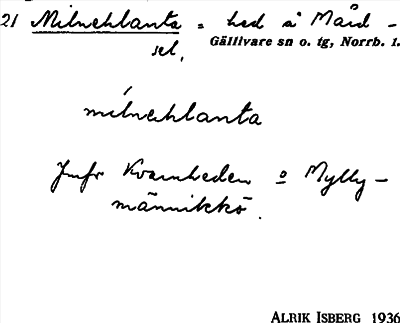 21 Milnehlanta = hed å Mård-
sel,
Gällivare sn o. tg, Norrb. l.
mílnehlanta
Jmfr Kvarnheden o Mylly-
männikkö.
ALRIK ISBERG 1936